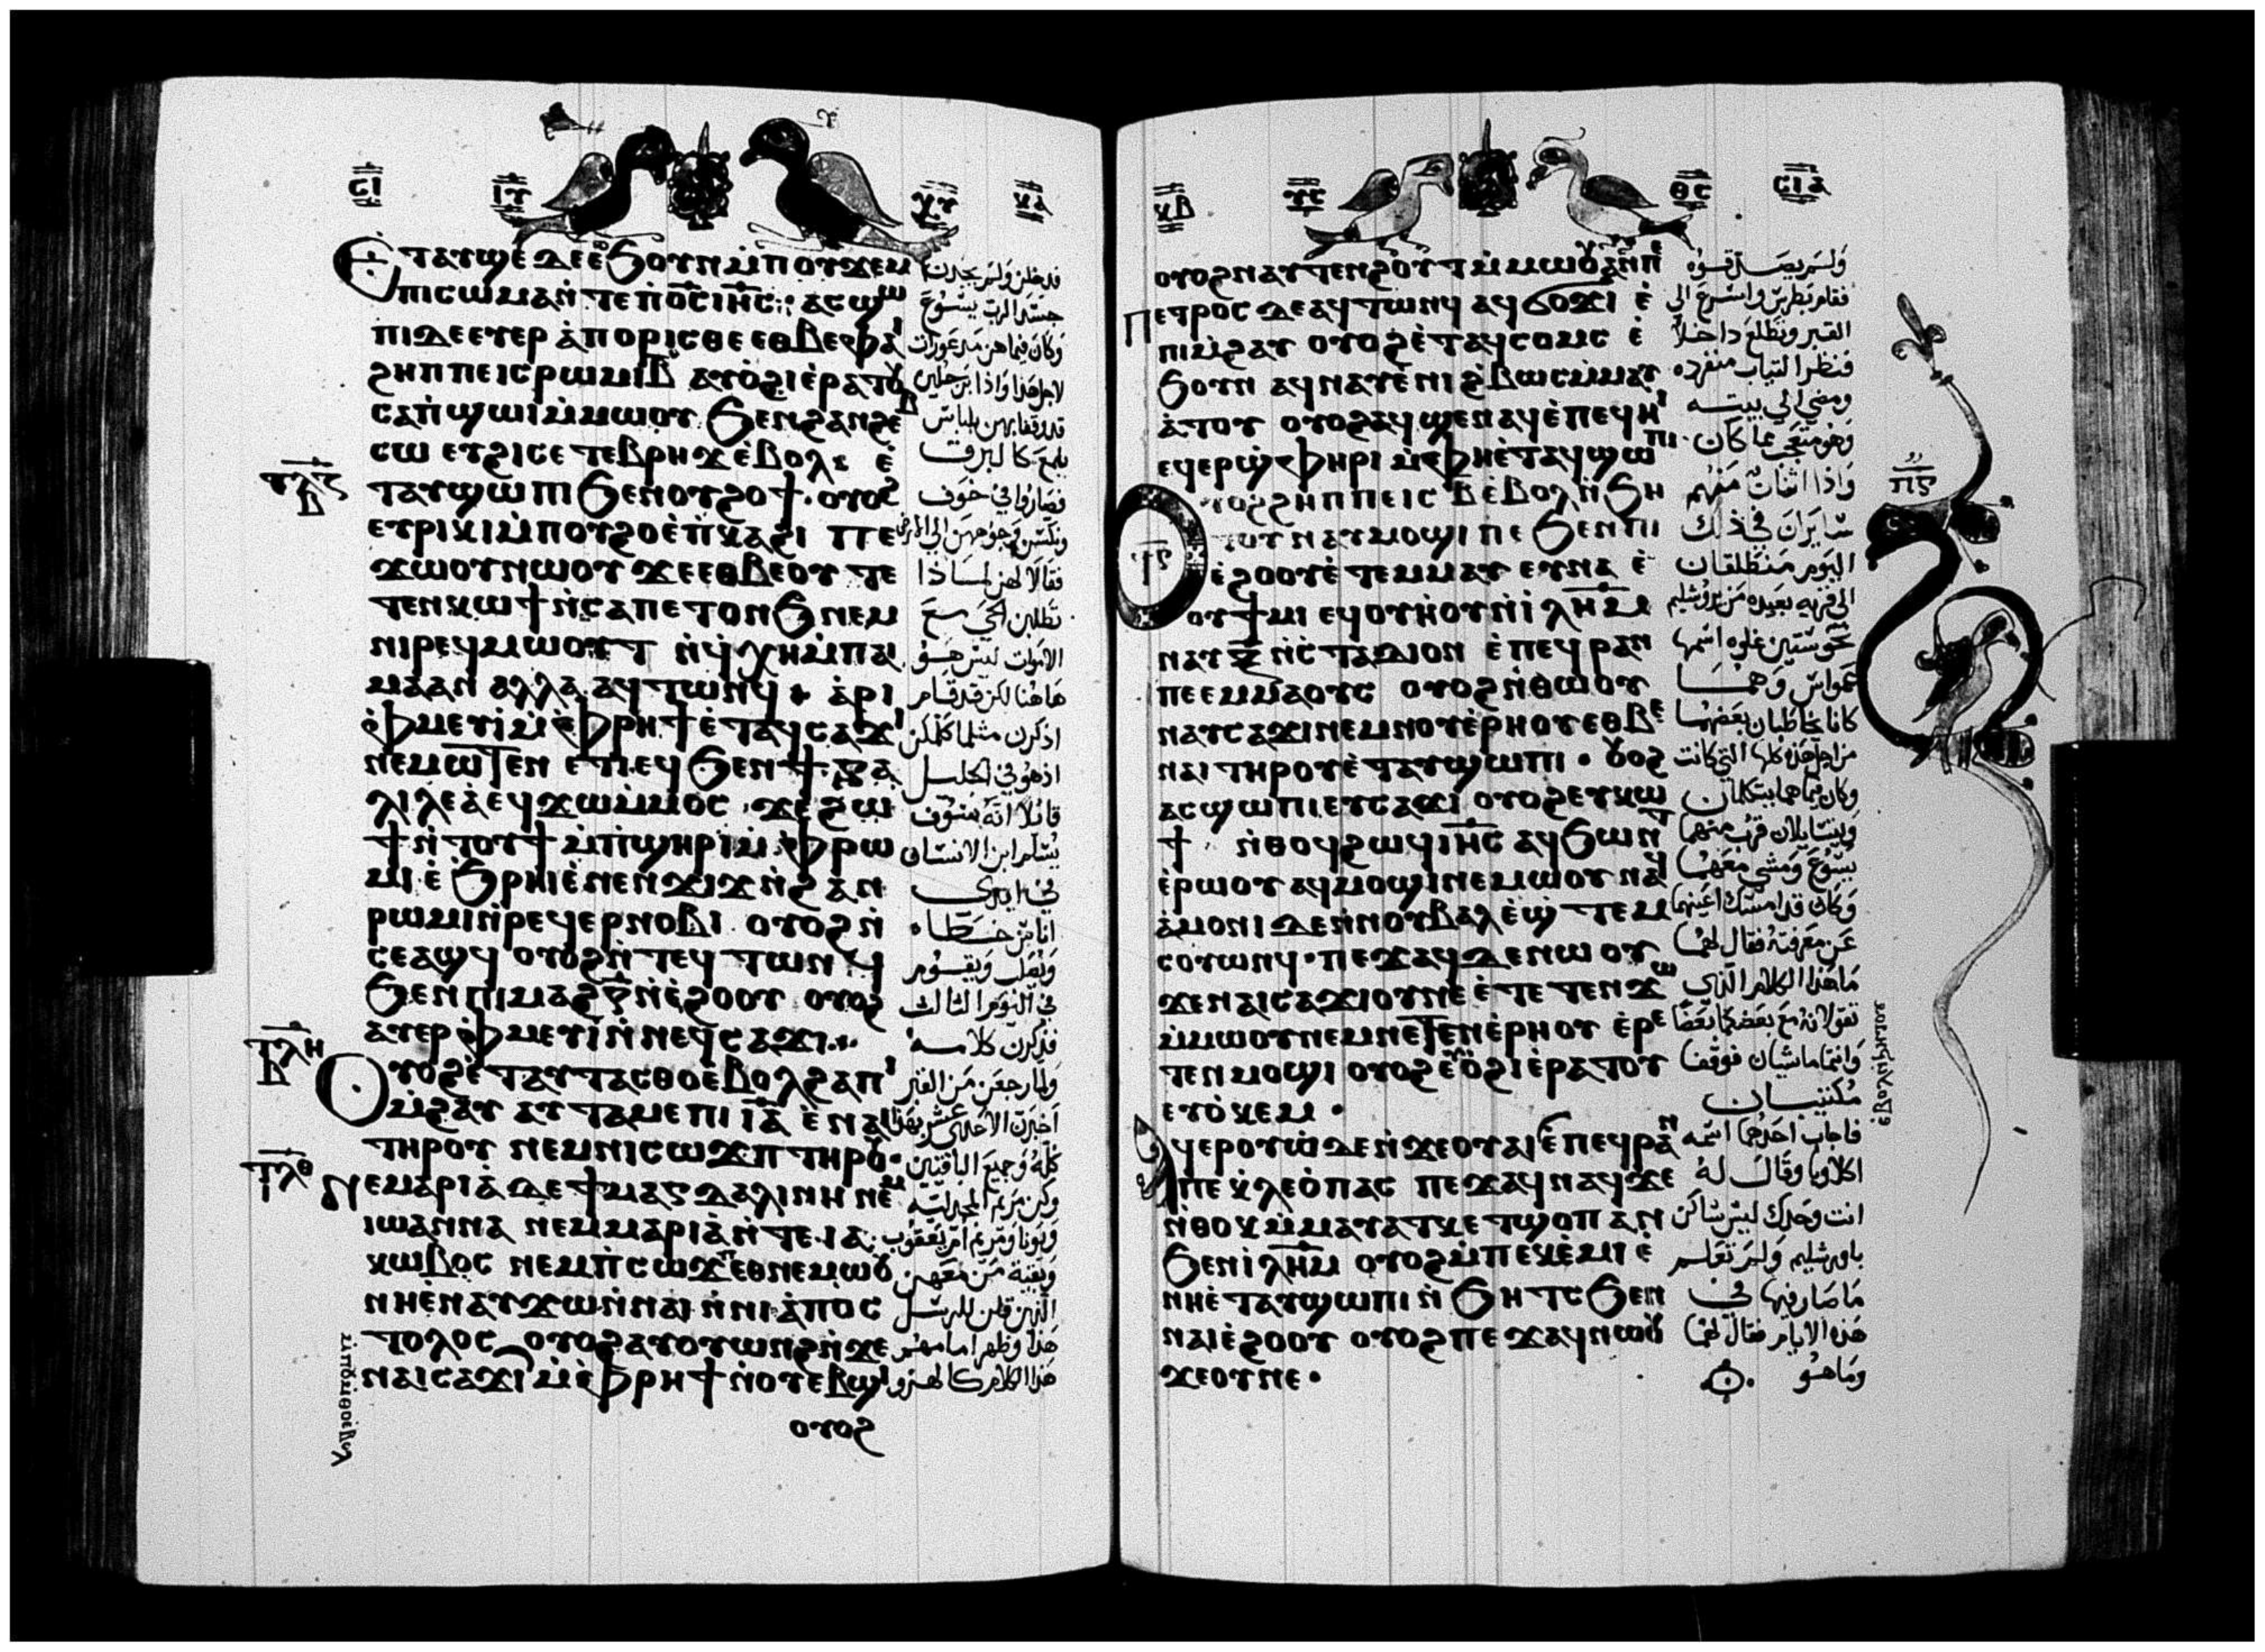 ⲉⲧⲁⲩϣⲉ ⲇⲉ ⲉ̀ϧⲟⲩⲛ ⲙ̀ⲡⲟⲩϫⲉⲙ
ⲡⲓⲥⲱⲙⲁ ⲛ̀ⲧⲉ ⲡ̀ⲟ̅ⲥ̅ ⲓⲏ̅ⲥ̅ ⲁⲥϣⲱ
ⲡⲓ ⲇⲉ ⲉⲩⲉⲣ ⲁ̀ⲡⲟⲣⲓⲥⲑⲉ ⲉⲑⲃⲉ ⲫⲁⲓ
ϩⲏⲡⲡⲉ ⲓⲥ ⲣⲱⲙⲓ ⲃ̅ ⲁⲩⲟ̀ϩⲓ ⲉ̀ⲣⲁⲧⲟⲩ
ⲥⲁⲡ̀ϣⲱⲓ ⲙ̀ⲙⲱⲟⲩ ϧⲉⲛ ϩⲁⲛϩⲉⲃ
ⲥⲱ ⲉⲩϩⲓⲥⲉⲧⲉⲃⲣⲏϫ ⲉ̀ⲃⲟⲗ ⲉ̀
ⲧⲁⲩϣⲱⲡⲓ ϧⲉⲛ ⲟⲩϩⲟϯ ⲟⲩⲟϩ
ⲉⲩⲣⲓⲕⲓ ⲙ̀ⲡⲟⲩϩⲟ ⲉ̀ⲡ̀ⲕⲁϩⲓ ⲡⲉ
ϫⲱⲟⲩ ⲛⲱⲟⲩ ϫⲉ ⲉⲑⲃⲉⲟⲩ ⲧⲉ
ⲧⲉⲛⲕⲱϯ ⲛ̀ⲥⲁ ⲡⲉⲧⲟⲛϧ ⲛⲉⲙ
ⲛⲓⲣⲉϥⲙⲱⲟⲩⲧ ⲛ̀ϥ̀ⲭⲏ ⲙ̀ⲡⲁⲓ
ⲙⲁ ⲁⲛ ⲁⲗⲗⲁ ⲁϥⲧⲱⲛϥ ⲁ̀ⲣⲓ
ⲫ̀ⲙⲉⲩⲓ̀ ⲙ̀ⲫ̀ⲣⲏϯ ⲉ̀ⲧⲁϥⲥⲁϫⲓ
ⲛⲉⲙⲱⲧⲉⲛ ⲉⲧⲓ ⲉϥϧⲉⲛ ϯⲅⲁ
ⲗⲓⲗⲉⲁ̀ ⲉϥϫⲱ ⲙ̀ⲙⲟⲥ ϫⲉ ϩⲱ
ϯ ⲛ̀ⲧⲟⲩϯ ⲙ̀ⲡ̀ϣⲏⲣⲓ ⲙ̀ⲫ̀ⲣⲱ
ⲙⲓ ⲉ̀ϧⲣⲏⲓ ⲉ̀ⲛⲉⲛϫⲓϫ ⲛ̀ϩⲁⲛ
ⲣⲱⲙⲓ ⲛ̀ⲣⲉϥⲉⲣⲛⲟⲃⲓ ⲟⲩⲟϩ ⲛ̀
ⲥⲉⲁϣϥ ⲟⲩⲟϩ ⲛ̀ⲧⲉϥⲧⲱⲛϥ
ϧⲉⲛ ⲡⲓⲙⲁϩ ⲅ̅ ⲛ̀ⲉ̀ϩⲟⲟⲩ ⲟⲩⲟϩ
ⲁⲩⲉⲣⲫ̀ⲙⲉⲩⲓ̀ ⲛ̀ⲛⲉϥⲥⲁϫⲓ
ⲟⲩⲟϩ ⲉ̀ⲧⲁⲩⲧⲁⲥⲑⲟ ⲉ̀ⲃⲟⲗ ϩⲁ ⲡⲓ
ⲙ̀ϩⲁⲩ ⲁⲩⲧⲁⲙⲉ ⲡⲓ ⲓ̅ⲁ̅ ⲉ̀ⲛⲁⲓ
ⲧⲏⲣⲟⲩ ⲛⲉⲙ ⲛⲓⲥⲱϫⲡ ⲧⲏⲣⲟⲩ
ⲛⲉ ⲙⲁⲣⲓⲁ̀ ⲇⲉ ϯⲙⲁⲅⲇⲁⲗⲓⲛⲏ ⲛⲉⲙ
ⲓⲱⲁⲛⲛⲁ ⲛⲉⲙ ⲙⲁⲣⲓⲁ̀ ⲛ̀ⲧⲉ ⲓⲁ
ⲕⲱⲃⲟⲥ ⲛⲉⲙ ⲡ̀ⲥⲱϫⲡ ⲉⲑⲛⲉⲙⲱⲟⲩ
ⲛⲏ ⲉ̀ⲛⲁⲩϫⲱ ⲛ̀ⲛⲁⲓ ⲛ̀ⲛⲓⲁ̀ⲡⲟⲥ
ⲧⲟⲗⲟⲥ ⲟⲩⲟϩ ⲁⲩⲟⲩⲱⲛϩ ⲛ̀ϫⲉ
ⲛⲁⲓⲥⲁϫⲓ ⲙ̀ⲫ̀ⲣⲏϯ ⲛ̀ⲟⲩⲉⲃϣⲓ
ⲟⲩⲟϩ
قد دخلن ولم يجدن
جسد الرب يسوع
وكان فيما هن متحيرات
لاجل هذا واذا برجلين
قد وقفا بهن بلباس
يلمع كالبرق
فصاروا في خوف
ونكسن وجوههن الى الارض
فقالا لهن لماذا
تطلبن الحي مع
الاموات ليس هو
هاهنا لكن قد قام
اذكرن مثلما كلمكن
اذ هو في الجليل
قائلا انه سوف
يسلم ابن الانسان
في ايدي
اناس خطاه
ويصلب ويقوم
في اليوم الثالث
فذكرن كلامه
ولما رجعن من القبر
اخبرن الاحد عشر بهذا
كله وجميع الباقيين
وكن مريم المجدلية
ويونا ومريم ام يعقوب
وبقية من معهن
الذين قلن للرسل
هذا وظهر امامهم
هذا الكلام كالهزو
ⲟⲩⲟϩ ⲛⲁⲩⲧⲉⲛϩⲟⲩⲧ ⲙ̀ⲙⲱⲟⲩ ⲁⲛ ⲡⲉ
ⲡⲉⲧⲣⲟⲥ ⲇⲉ ⲁϥⲧⲱⲛϥ ⲁϥϭⲟϫⲓ ⲉ̀
ⲡⲓⲙ̀ϩⲁⲩ ⲟⲩⲟϩ ⲉ̀ⲧⲁϥⲥⲟⲙⲥ ⲉ̀
ϧⲟⲩⲛ ⲁϥⲛⲁⲩ ⲉ̀ⲛⲓϩ̀ⲃⲱⲥ ⲙ̀ⲙⲁⲩ
ⲁ̀ⲧⲟⲩ ⲟⲩⲟϩ ⲁϥϣⲉⲛⲁϥ ⲉ̀ⲡⲉϥⲏⲓ
ⲉϥⲉⲣϣ̀ⲫⲏⲣⲓ ⲙ̀ⲫⲏ ⲉ̀ⲧⲁϥϣⲱⲡⲓ
ⲟⲩⲟϩ ϩⲏⲡⲡⲉ ⲓⲥ ⲃ̅ ⲉ̀ⲃⲟⲗ ⲛ̀ϧⲏ
ⲧⲟⲩ ⲛⲁⲩⲙⲟϣⲓ ⲡⲉ ϧⲉⲛ ⲡⲓ
ⲉ̀ϩⲟⲟⲩ ⲉ̀ⲧⲉⲙⲙⲁⲩ ⲉⲩⲛⲁ ⲉ̀
ⲟⲩϯⲙⲓ ⲉϥⲟⲩⲏⲟⲩ ⲛ̀ⲓ̀ⲗⲏ̅ⲙ̅
ⲛⲁⲩ ⲝ̅ ⲛ̀ⲥ̀ⲧⲁⲇⲓⲟⲛ ⲉ̀ⲡⲉϥⲣⲁⲛ
ⲡⲉ ⲉⲙⲙⲁⲟⲩⲥ ⲟⲩⲟϩ ⲛ̀ⲑⲱⲟⲩ
ⲛⲁⲩⲥⲁϫⲓ ⲛⲉⲙ ⲛⲟⲩⲉ̀ⲣⲏⲟⲩ ⲉⲑⲃⲉ
ⲛⲁⲓ ⲧⲏⲣⲟⲩ ⲉ̀ⲧⲁⲩϣⲱⲡⲓ ⲟⲩⲟϩ
ⲁⲥϣⲱⲡⲓ ⲉⲩⲥⲁϫⲓ ⲟⲩⲟϩ ⲉⲩⲕⲱ
ϯ ⲛ̀ⲑⲟϥ ϩⲱϥ ⲓⲏ̅ⲥ̅ ⲁϥϧⲱⲛⲧ
ⲉ̀ⲣⲱⲟⲩ ⲁϥⲙⲟϣⲓ ⲛⲉⲙⲱⲟⲩ ⲛⲁⲩ
ⲁ̀ⲙⲟⲛⲓ ⲇⲉ ⲛ̀ⲛⲟⲩⲃⲁⲗ ⲉ̀ϣ̀ⲧⲉⲙ
ⲥⲟⲩⲱⲛϥ ⲡⲉϫⲁϥ ⲇⲉ ⲛⲱⲟⲩ
ϫⲉ ⲛⲁⲓⲥⲁϫⲓ ⲟⲩ ⲛⲉ ⲉ̀ⲧⲉⲧⲉⲛϫⲱ
ⲙ̀ⲙⲱⲟⲩ ⲛⲉⲙ ⲛⲉⲧⲉⲛⲉ̀ⲣⲏⲟⲩ ⲉ̀ⲣⲉ
ⲧⲉⲛⲙⲟϣⲓ ⲟⲩⲟϩ ⲟ̀ϩⲓ ⲉ̀ⲣⲁⲧⲟⲩ
ⲉⲩⲟ̀ⲕⲉⲙ
ⲁϥⲉⲣⲟⲩⲱ̀ ⲇⲉ ⲛ̀ϫⲉ ⲟⲩⲁⲓ ⲉ̀ⲡⲉϥⲣⲁⲛ
ⲡⲉ ⲕ̀ⲗⲉⲟ̀ⲡⲁⲥ ⲡⲉϫⲁϥ ⲛⲁϥ ϫⲉ
ⲛ̀ⲑⲟⲕ ⲙ̀ⲙⲁⲩⲁⲧⲕ ⲉⲧϣⲟⲡ ⲁⲛ
ϧⲉⲛ ⲓ̀ⲗⲏ̅ⲙ̅ ⲟⲩⲟϩ ⲙ̀ⲡⲉⲕⲉ̀ⲙⲓ ⲉ̀
ⲛⲏ ⲉ̀ⲧⲁⲩϣⲱⲡⲓ ⲛ̀ϧⲏⲧⲥ ϧⲉⲛ
ⲛⲁⲓⲉ̀ϩⲟⲟⲩ ⲟⲩⲟϩ ⲡⲉϫⲁϥ ⲛⲱⲟⲩ
ϫⲉ ⲟⲩ ⲛⲉ
ولم يصدقوه
فقام بطرس واسرع الى
القبر وتطلع داخلا
فنظر الثياب منفرده
ومضى الى بيته
وهو متعجب مما كان
واذا اثنان منهم
سايران في ذلك
اليوم منطلقان
الى قريه بعيده من يروشليم
نحو ستين غلوه اسمها
عمواس وهما
كانا يخاطبان بعضهما
من اجل هذه كلها التي كانت
وكان فيما هما يتكلمان
ويتسايلان قرب منهما
يسوع ومشى معهما
وكان قد امسك اعينهما
عن معرفته فقال لهما
ما هذا الكلام الذي
تقولانه مع بعضكما بعضا
وانتما ماشيان فوقفا
مكتئبان
فاجاب احدهما اسمه
اكلاوبا وقال له
انت وحدك ليس ساكن
باورشليم ولم تعلم
ما صار فيها في
هذه الايام فقال لهما
وما هو